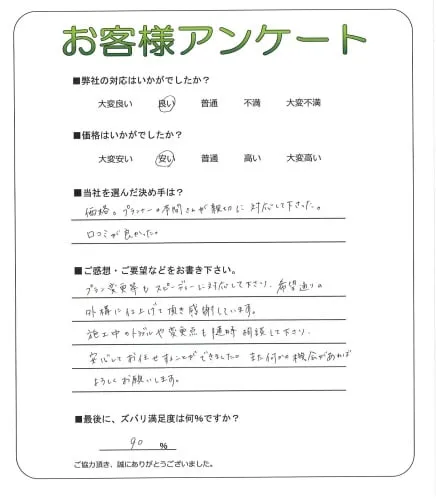 お客様アンケート
■弊社の対応はいかがでしたか?
大変良い 良い 普通 不満 大変不満
■価格はいかがでしたか?
大変安い 安い 普通 高い 大変高い
■当社を選んだ決め手は?
価格。プランナーの本間さんが親切に対応して下さった。
口コミが良かった。
■ご感想・ご要望などをお書き下さい。
プラン変更等もスピーディーに対応して下さり、希望通りの
外構に仕上げて頂き感謝しています。
施工中のトラブルや変更点も随時相談して下さり、
安心してお任せすることができました。また何かの機会があれば
よろしくお願いします。
■最後に、ズバリ満足度は何%ですか?
90 %
ご協力頂き、誠にありがとうございました。